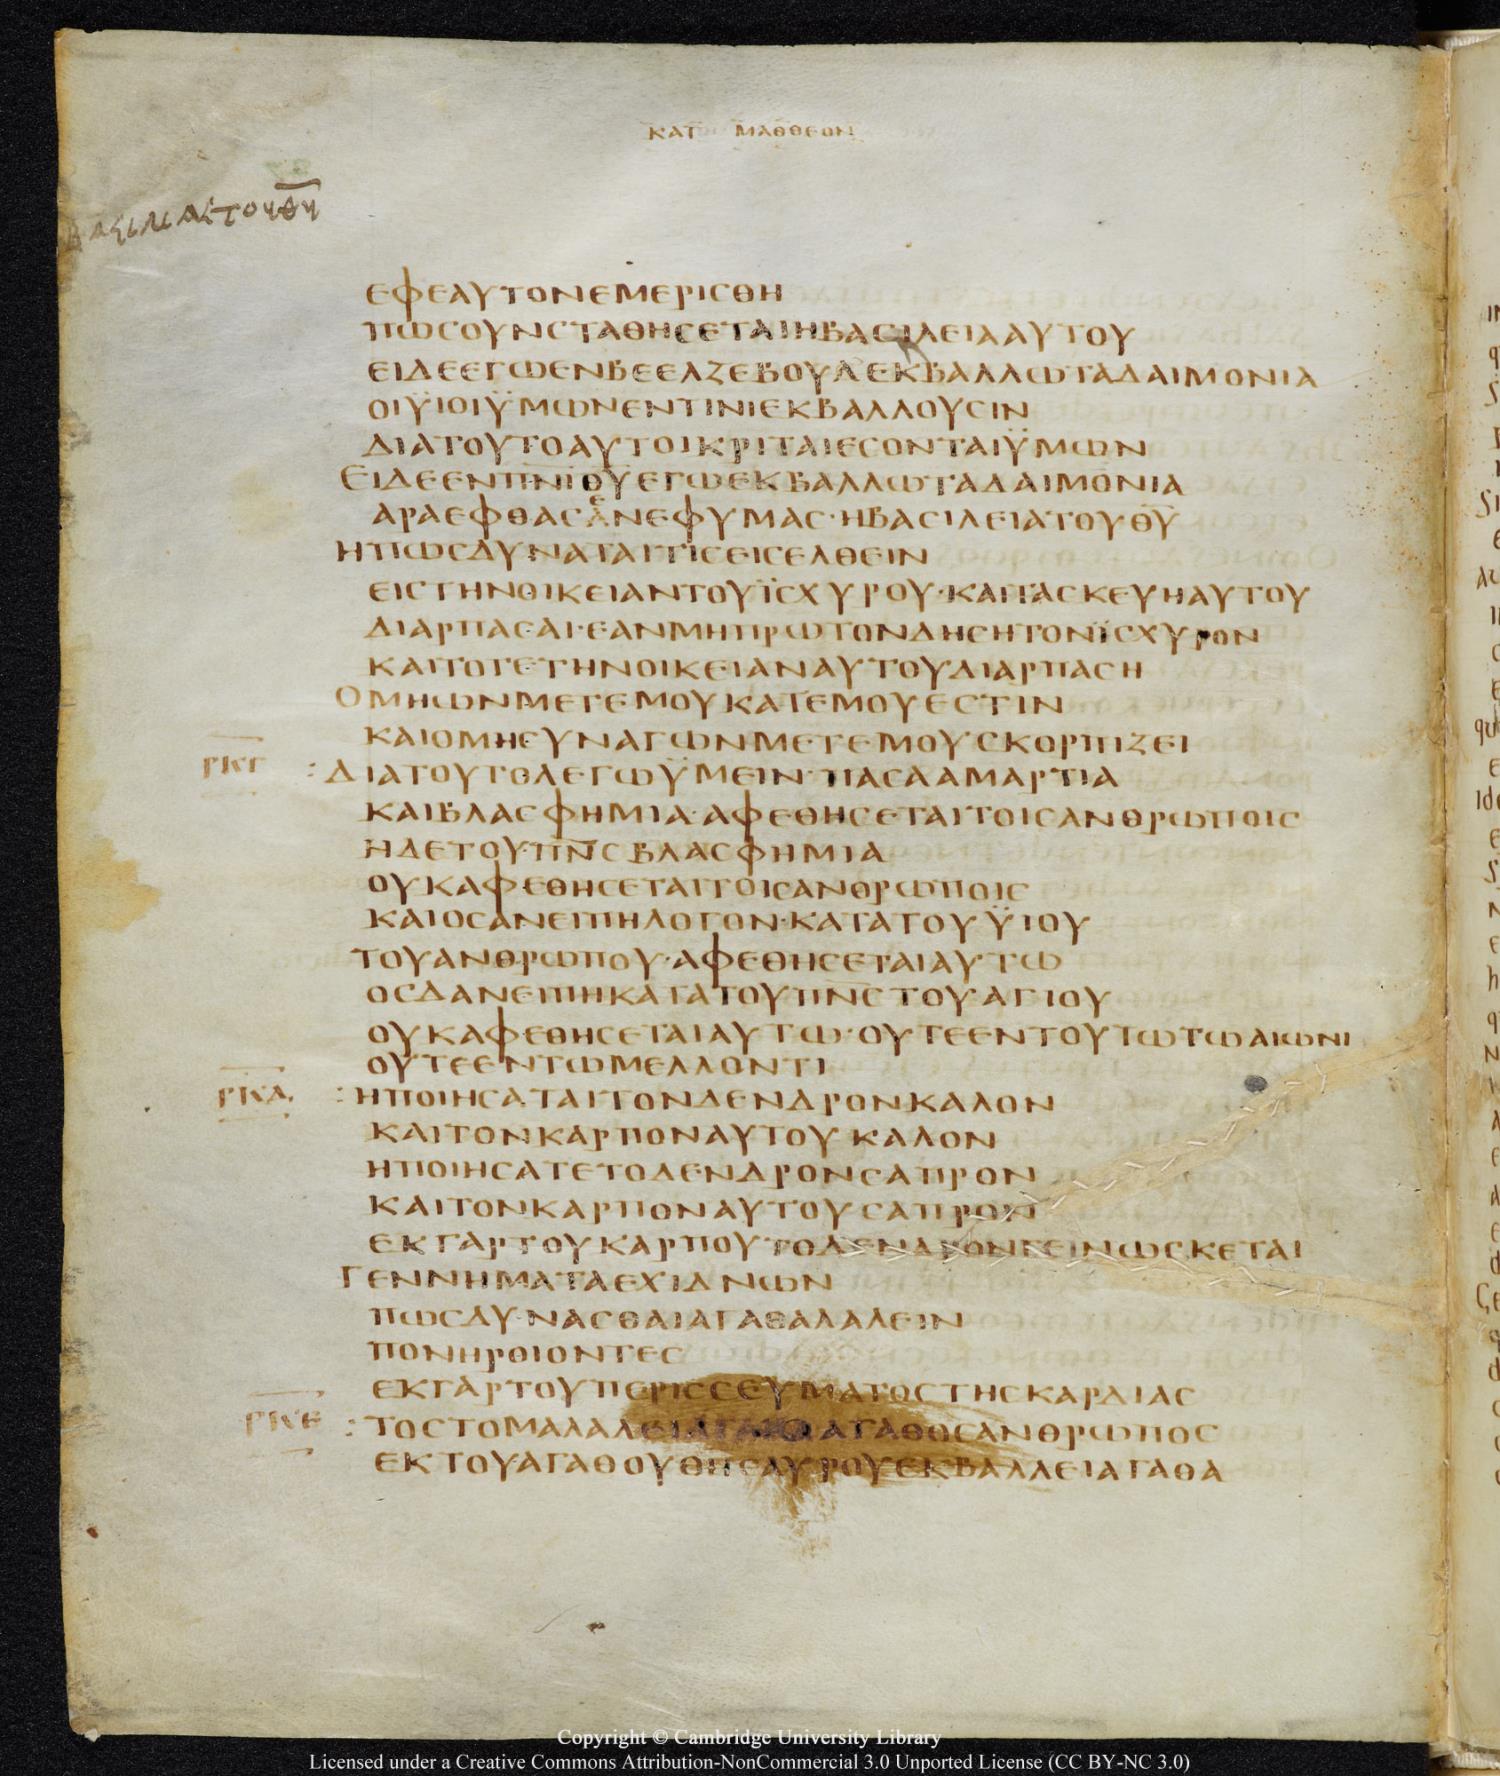 ΚΑΤ ΜΑΘΘΕΟΝ
ΒΑΣΙΛΙΑΣ ΤΟΥ ΘΥ
ΕΦΕΑΥΤΟΝΕΜΕΡΙCΘΗ
ΠΩCΟΥΝCΤΑΘΗCΕΤΑΙΗΒΑCΙΛΕΙΑΑΥΤΟΥ
ΕΙΔΕΕΓΩΕΝΒΕΕΛΖΕΒΟΥΛΕΚΒΑΛΛΩΤΑΔΑΙΜΟΝΙΑ
ΟΙΫΙΟΙΫΜΩΝΕΝΤΙΝΙΕΚΒΑΛΛΟΥCΙΝ
ΔΙΑΤΟΥΤΟΑΥΤΟΙΚΡΙΤΑΙΕCΟΝΤΑΙΫΜΩΝ
ΕΙΔΕΕΝΠΝΙΘΥΕΓΩΕΚΒΑΛΛΩΤΑΔΑΙΜΟΝΙΑ
ΑΡΑΕΦΘΑCΕΝΕΦΥΜΑC·ΗΒΑCΙΛΕΙΑΤΟΥΘΥ
ΗΠΩCΔΥΝΑΤΑΙΤΙCΕΙCΕΛΘΕΙΝ
ΕΙCΤΗΝΟΙΚΕΙΑΝΤΟΥΪCΧΥΡΟΥ·ΚΑΙΤΑCΚΕΥΗΑΥΤΟΥ
ΔΙΑΡΠΑCΑΙ·ΕΑΝΜΗΠΡΩΤΟΝΔΗCΗΤΟΝΪCΧΥΡΟΝ
ΚΑΙΤΟΤΕΤΗΝΟΙΚΕΙΑΝΑΥΤΟΥΔΙΑΡΠΑCΗ
ΟΜΗΩΝΜΕΤΕΜΟΥΚΑΤΕΜΟΥΕCΤΙΝ
ΚΑΙΟΜΗCΥΝΑΓΩΝΜΕΤΕΜΟΥCΚΟΡΠΙΖΕΙ
ΡΚΓ :ΔΙΑΤΟΥΤΟΛΕΓΩΫΜΕΙΝ·ΠΑCΑΑΜΑΡΤΙΑ
ΚΑΙΒΛΑCΦΗΜΙΑ·ΑΦΕΘΗCΕΤΑΙΤΟΙCΑΝΘΡΩΠΟΙC
ΗΔΕΤΟΥΠΝCΒΛΑCΦΗΜΙΑ
ΟΥΚΑΦΕΘΗCΕΤΑΙΤΟΙCΑΝΘΡΩΠΟΙC
ΚΑΙΟCΑΝΕΙΠΗΛΟΓΟΝ·ΚΑΤΑΤΟΥΫΙΟΥ
ΤΟΥΑΝΘΡΩΠΟΥ·ΑΦΕΘΗCΕΤΑΙΑΥΤΩ
ΟCΔΑΝΕΙΠΗΚΑΤΑΤΟΥΠΝCΤΟΥΑΓΙΟΥ
ΟΥΚΑΦΕΘΗCΕΤΑΙΑΥΤΩ·ΟΥΤΕΕΝΤΟΥΤΩΤΩΑΙΩΝΙ
ΟΥΤΕΕΝΤΩΜΕΛΛΟΝΤΙ
ΡΚΔ :ΗΠΟΙΗCΑΤΑΙΤΟΝΔΕΝΔΡΟΝΚΑΛΟΝ
ΚΑΙΤΟΝΚΑΡΠΟΝΑΥΤΟΥΚΑΛΟΝ
ΗΠΟΙΗCΑΤΕΤΟΔΕΝΔΡΟΝCΑΠΡΟΝ
ΚΑΙΤΟΝΚΑΡΠΟΝΑΥΤΟΥCΑΠΡΟΝ
ΕΚΓΑΡΤΟΥΚΑΡΠΟΥΤΟΔΕΝΔΡΟΝΓΕΙΝΩCΚΕΤΑΙ
ΓΕΝΝΗΜΑΤΑΕΧΙΔΝΩΝ
ΠΩCΔΥΝΑCΘΑΙΑΓΑΘΑΛΑΛΕΙΝ
ΠΟΝΗΡΟΙΟΝΤΕC
ΕΚΓΑΡΤΟΥΠΕΡΙCCΕΥΜΑΤΟCΤΗCΚΑΡΔΙΑC
ΡΚΕ :ΤΟCΤΟΜΑΛΑΛΕΙΑΓΑΘΑΑΓΑΘΟCΑΝΘΡΩΠΟC
ΕΚΤΟΥΑΓΑΘΟΥΘΗCΑΥΡΟΥΕΚΒΑΛΛΕΙΑΓΑΘΑ
Copyright © Cambridge University Library
Licensed under a Creative Commons Attribution-NonCommercial 3.0 Unported License (CC BY-NC 3.0)